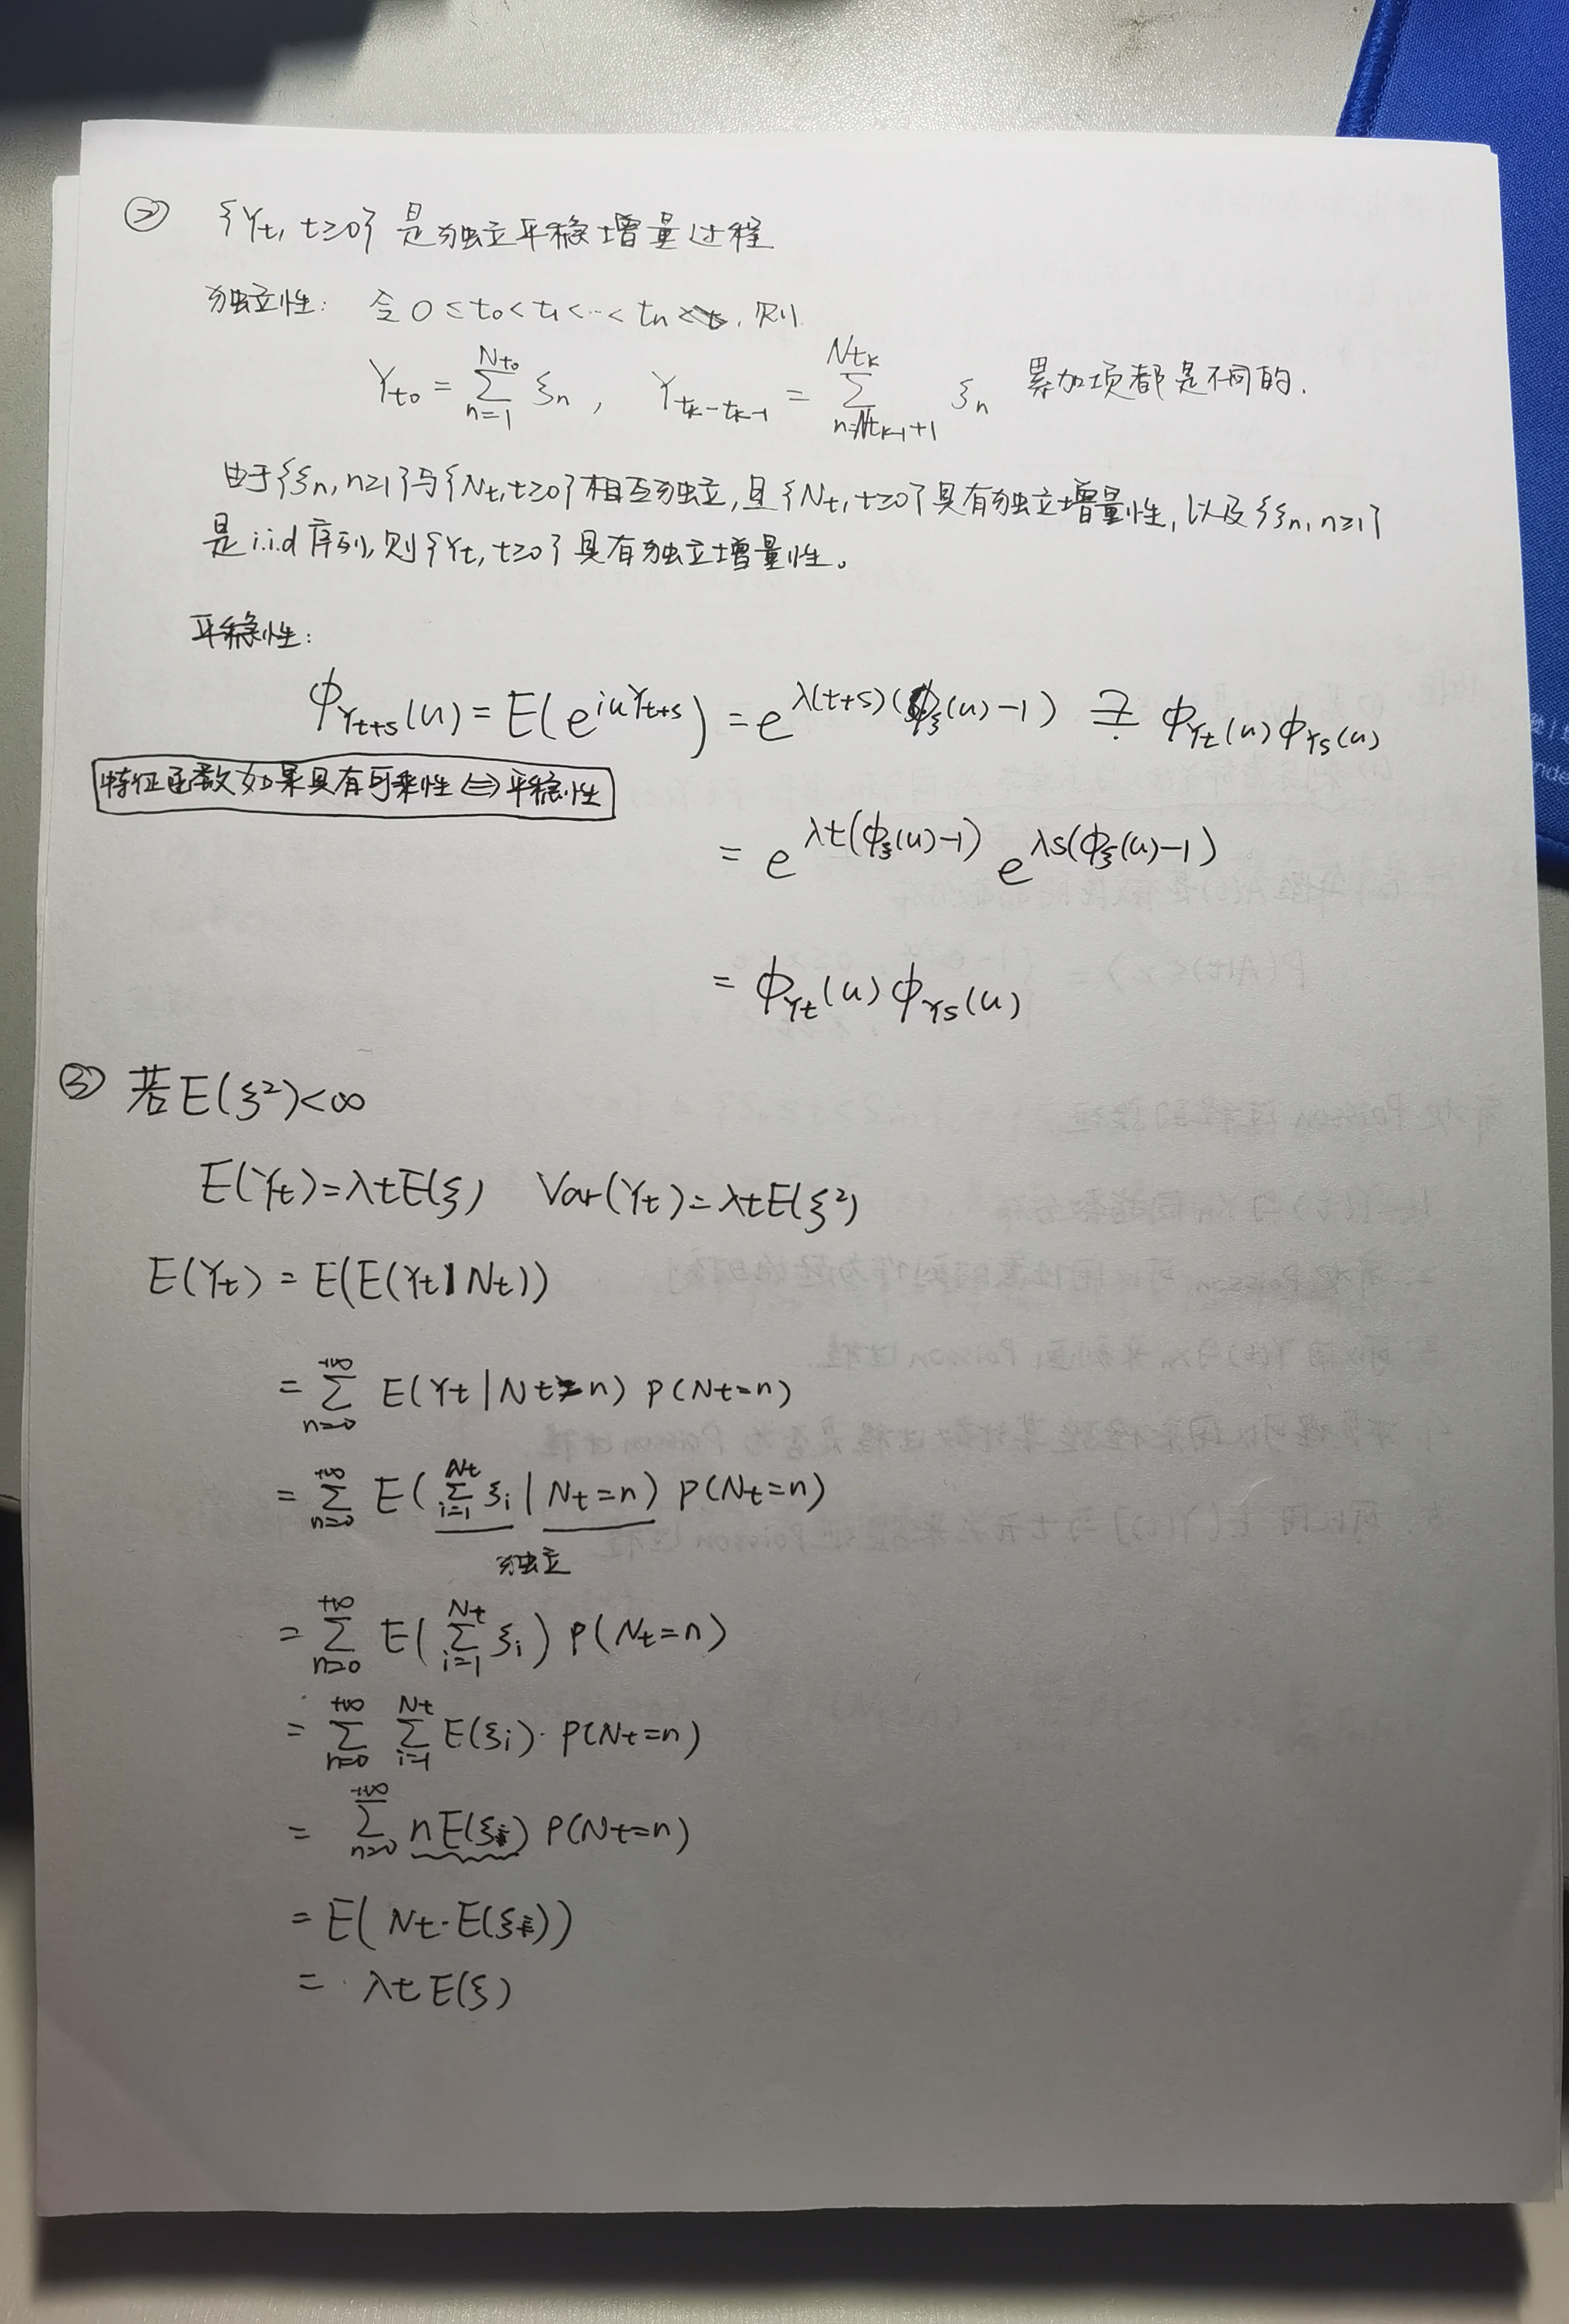 ② {Yt, t≥0} 是独立平稳增量过程
独立性: 令 0≤t₀<t₁<…<tn, 则
Yt₀ = ∑_{n=1}^{Nt₀} ξn, Y_{tk-tk-1} = ∑_{n=Ntk-1+1}^{Ntk} ξn 累加项都是不同的.
由于{ξn, n≥1}与{Nt, t≥0}相互独立,且{Nt, t≥0}具有独立增量性,以及{ξn, n≥1}
是 i.i.d 序列,则{Yt, t≥0}具有独立增量性。
平稳性:
ϕ_{Yt+s}(u) = E(e^{iuYt+s}) = e^{λ(t+s)(ϕξ(u)-1)} ϕ_{Yt}(u)ϕ_{Ys}(u)
特征函数如果具有可乘性⇔平稳性
= e^{λt(ϕξ(u)-1)} e^{λs(ϕξ(u)-1)}
= ϕ_{Yt}(u)ϕ_{Ys}(u)
③ 若E(ξ²)<∞
E(Yt)=λtE(ξ) Var(Yt)=λtE(ξ²)
E(Yt) = E(E(Yt|Nt))
= ∑_{n=0}^{+∞} E(Yt|Nt=n) P(Nt=n)
= ∑_{n=0}^{+∞} E(∑_{i=1}^{Nt} ξi | Nt=n) P(Nt=n)
独立
= ∑_{n=0}^{+∞} E(∑_{i=1}^{Nt} ξi) P(Nt=n)
= ∑_{n=0}^{+∞} ∑_{i=1}^{Nt} E(ξi)·P(Nt=n)
= ∑_{n=0}^{+∞} nE(ξ) P(Nt=n)
= E(Nt·E(ξ))
= λtE(ξ)